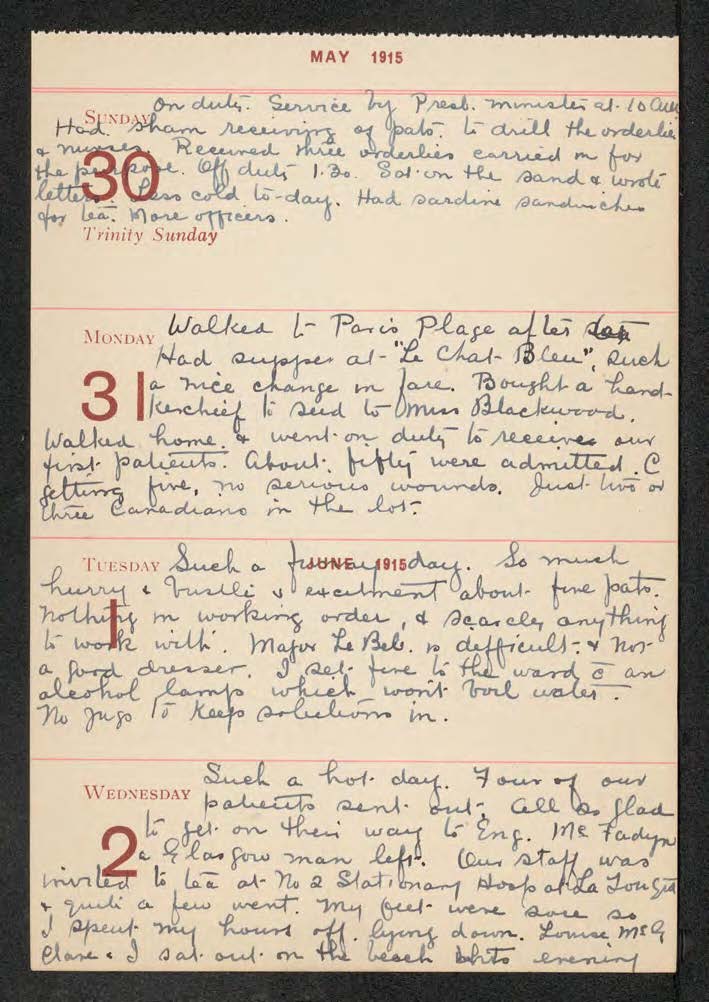 MAY 1915
SUNDAY On duty. Service by Presb. minister at 10 a.m.
Had sham receiving of pats. to drill the orderlies
& nurses. Received three orderlies carried in for
30
the purpose. Off duty 1.30. Sat on the sand & wrote
letters. Less cold to-day. Had sardine sandwiches
for tea. More officers.
Trinity Sunday
Walked to Paris Plage after
MONDAY
Had supper at "Le Chat Bleu", such
31
a nice change in fare. Bought a hand-
kerchief to send to Miss Blackwood.
Walked home & went on duty to receive our
first patients. About fifty were admitted. C
getting five, no serious wounds. Just two or
three Canadians in the lot.
TUESDAY Such a funny day. So much
JUNE 1915
hurry & bustle & excitment about five pats.
1
Nothing in working order, & scarcely anything
to work with. Major Le Bel. is difficult & not
a good dresser. I set fire to the ward c̄ an
alcohol lamp which won't boil water.
No jugs to keep solutions in.
Such a hot day. Four of our
WEDNESDAY
patients sent out. All so glad
to get on their way to Eng. Mc Fadyn
2
a Glasgow man left. Our staff was
invited to tea at No 2 Stationary Hosp at La
& quite a few went. My feet were sore so
I spent my hours off lying down. Louise McG
Clare & I sat out on the beach evening